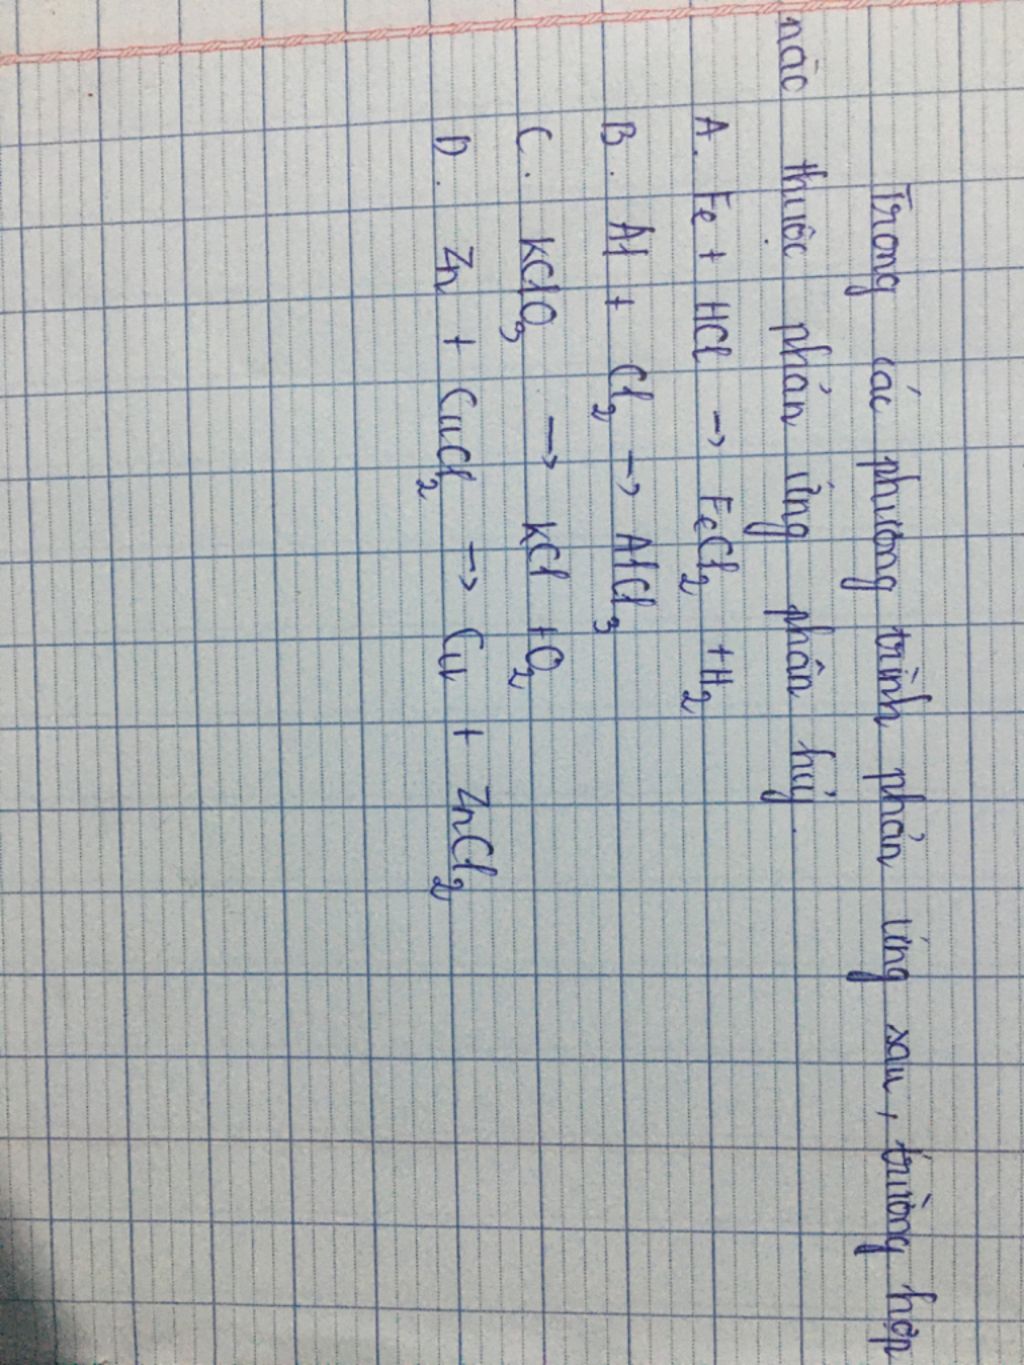 Trong các phương trình phản ứng sau, trường hợp
nào thuộc phản ứng phân hủy.
A. Fe + HCl → FeCl₂ + H₂
B. Al + Cl₂ → AlCl₃
C. KClO₃ → KCl + O₂
D. Zn + CuCl₂ → Cu + ZnCl₂